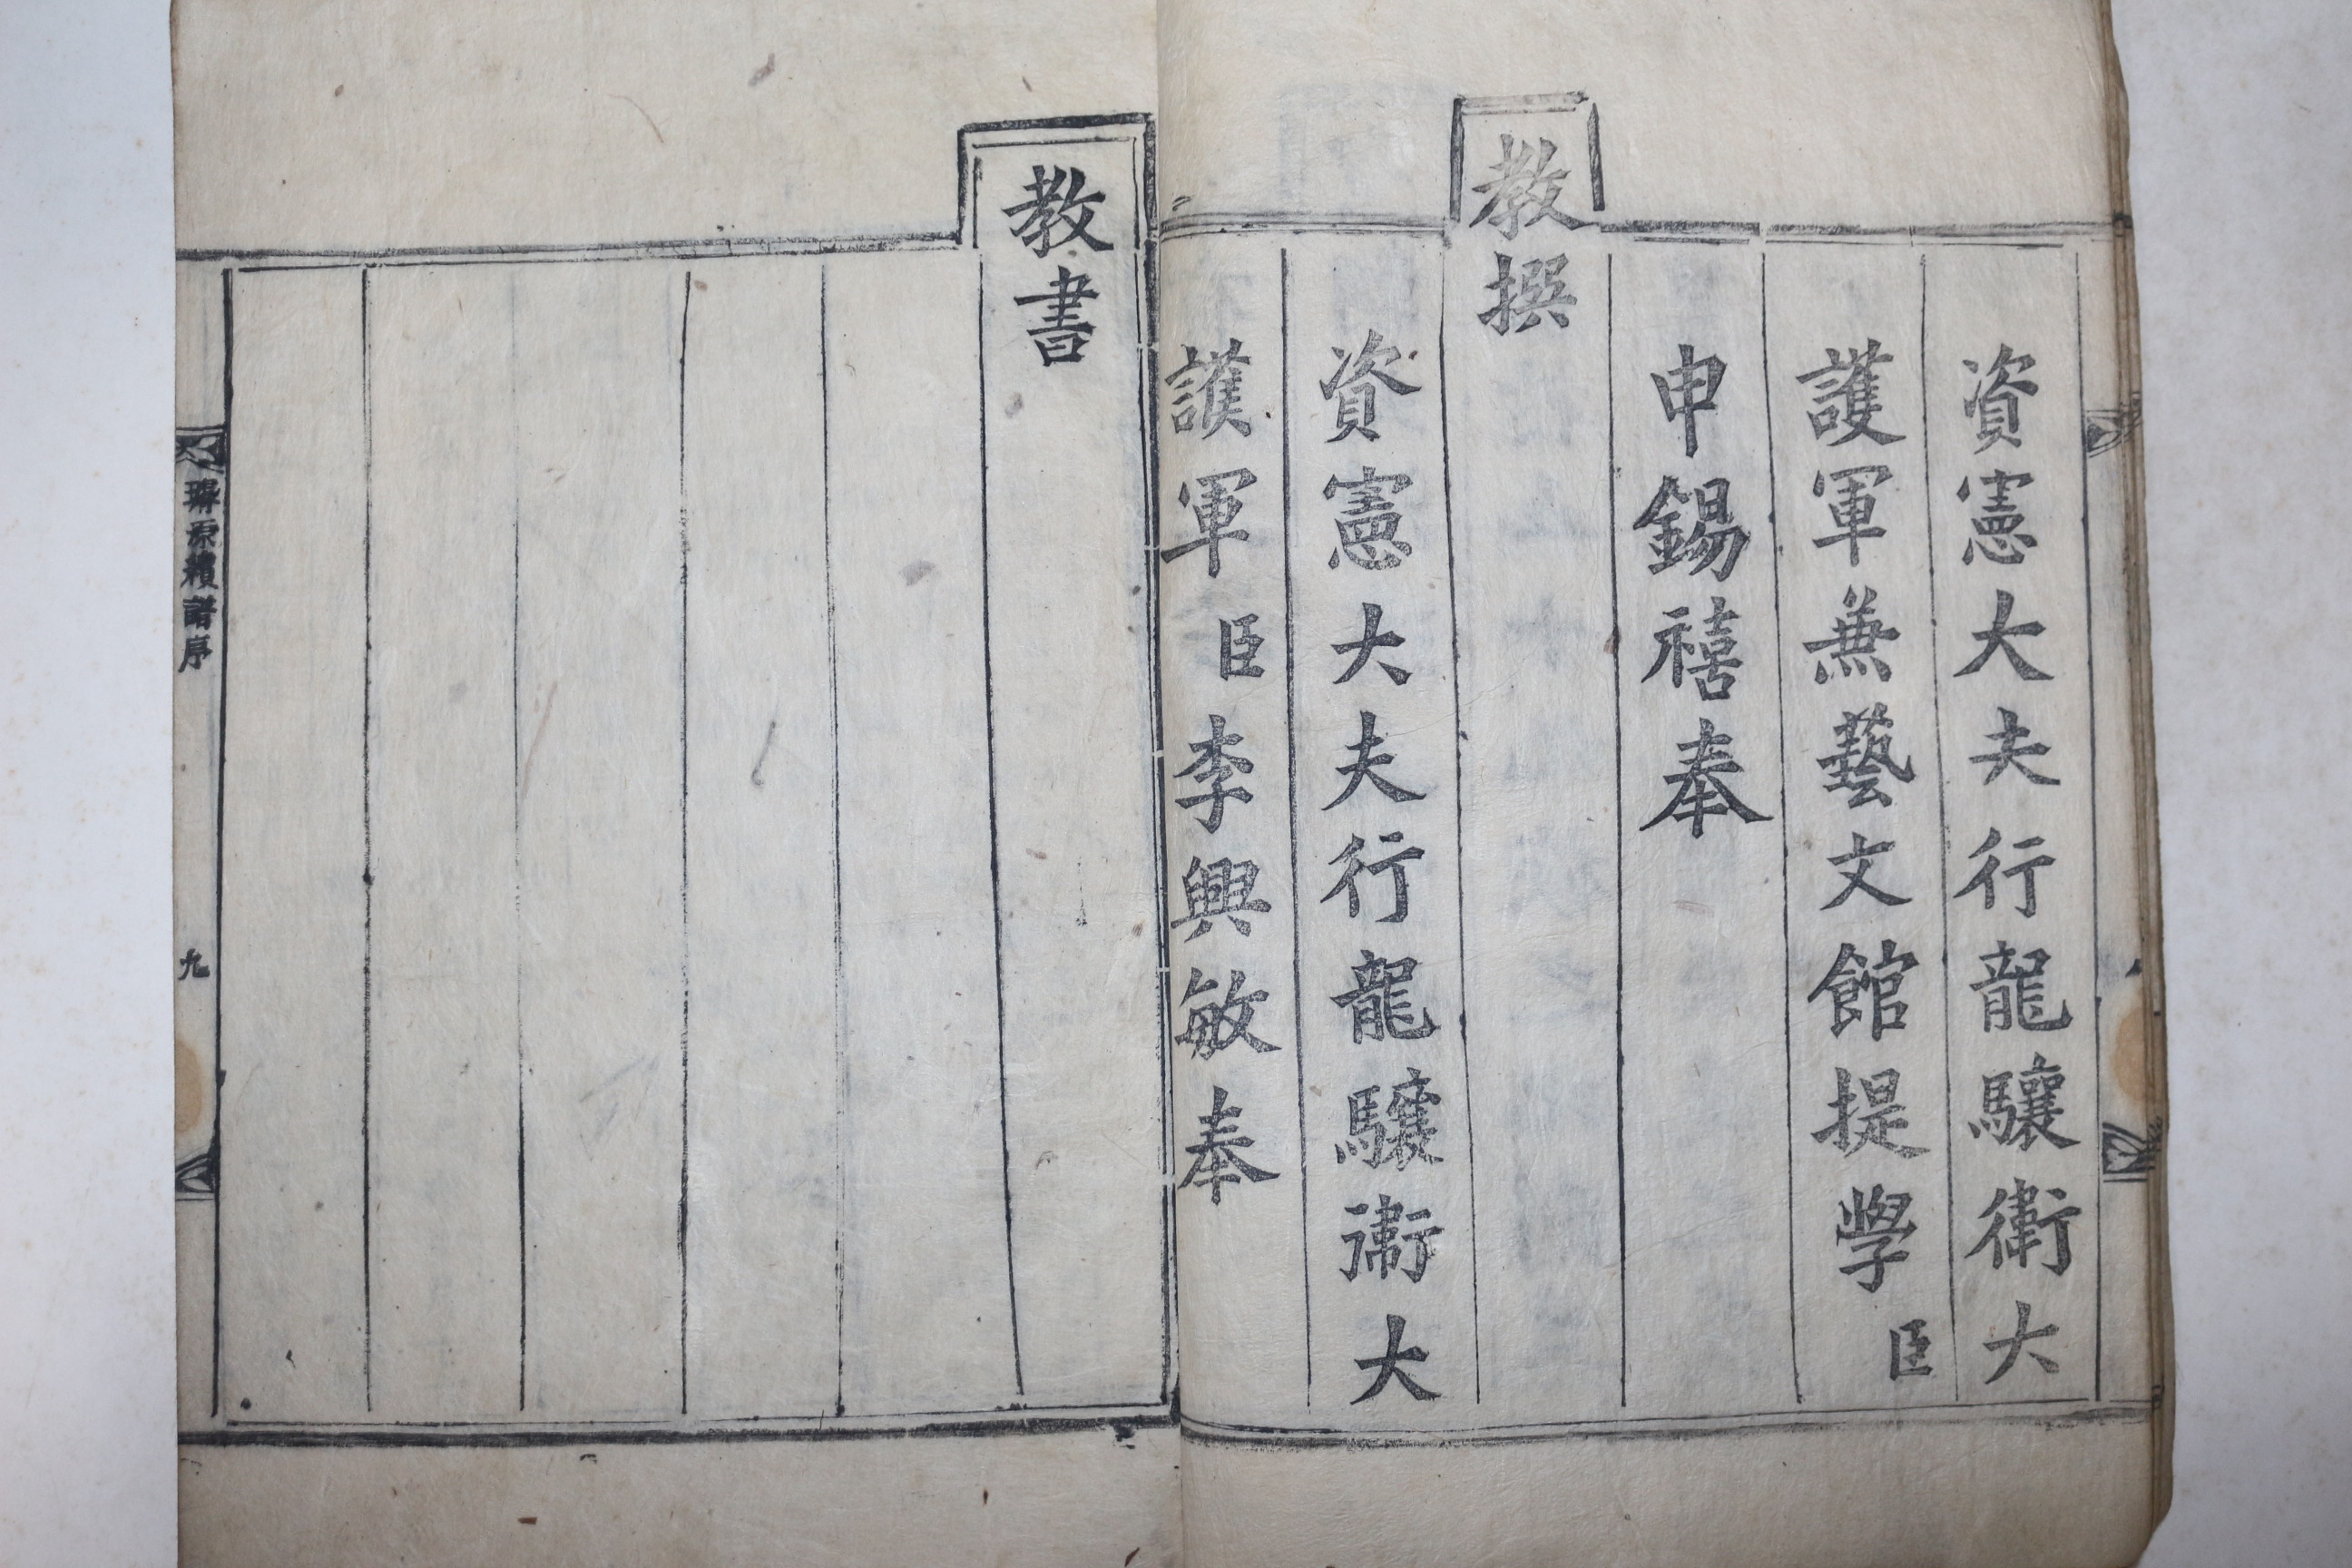 資憲大夫行龍驤衛大
護軍兼藝文館提學臣
申錫禧奉
教撰
資憲大夫行龍驤衛大
護軍臣李興敏奉
教書
璿源續譜序
九